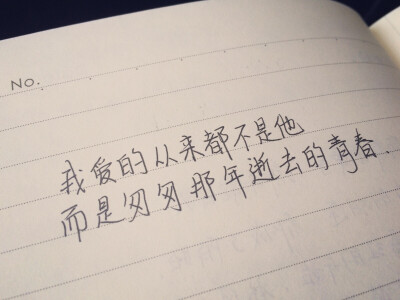 No.
我爱的从来都不是他
而是匆匆那年逝去的青春.